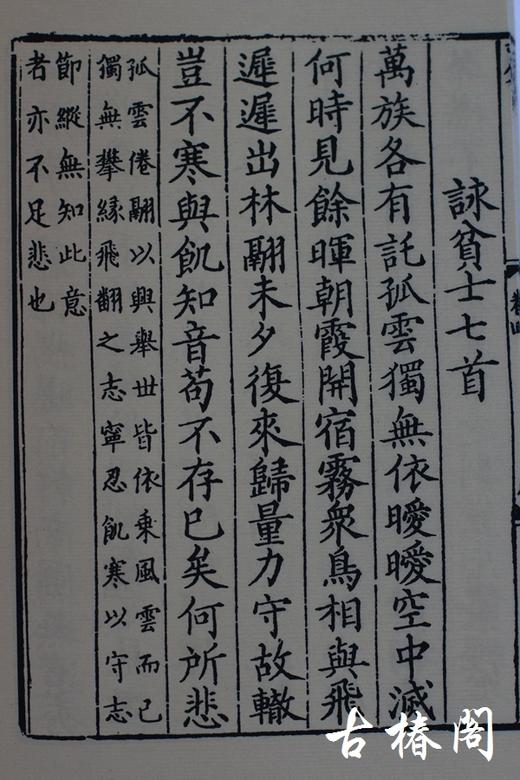 詠貧士七首
萬族各有託孤雲獨無依曖曖空中滅
何時見餘暉朝霞開宿霧衆鳥相與飛
遲遲出林翮未夕復來歸量力守故轍
豈不寒與飢知音苟不存已矣何所悲
孤雲倦翮以興舉世皆依乘風雲而已
獨無攀緣飛翻之志寧忍飢寒以守志
節縱無知此意
者亦不足悲也
卷四
古椿阁